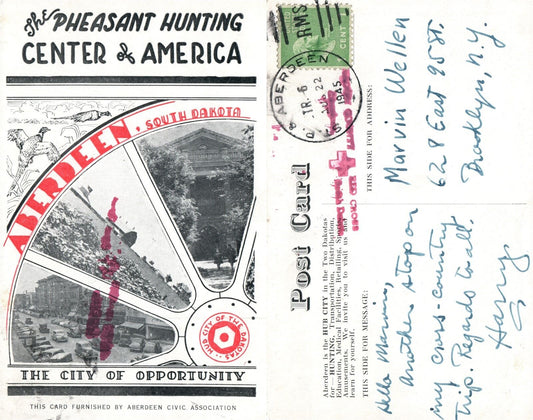 The PHEASANT HUNTING
CENTER of AMERICA
ABERDEEN, SOUTH DAKOTA
HUB CITY OF THE DAKOTAS
THE CITY OF OPPORTUNITY
THIS CARD FURNISHED BY ABERDEEN CIVIC ASSOCIATION
CENT
RMS
ABERDEEN
TR. 6
22
1945
Post Card
Aberdeen is the HUB CITY in the Two Dakotas
for—HUNTING, Transportation, Distribution,
Education, Medical Facilities, Retailing,
Amusements. We invite you to visit us and
learn for yourself.
THIS SIDE FOR MESSAGE:
Hello Marvin,
Another stop on
my cross-country
trip. Regards to all.
Harry
RED CROSS
THIS SIDE FOR ADDRESS:
Marvin Wellen
628 East 95 St.
Brooklyn, N.Y.